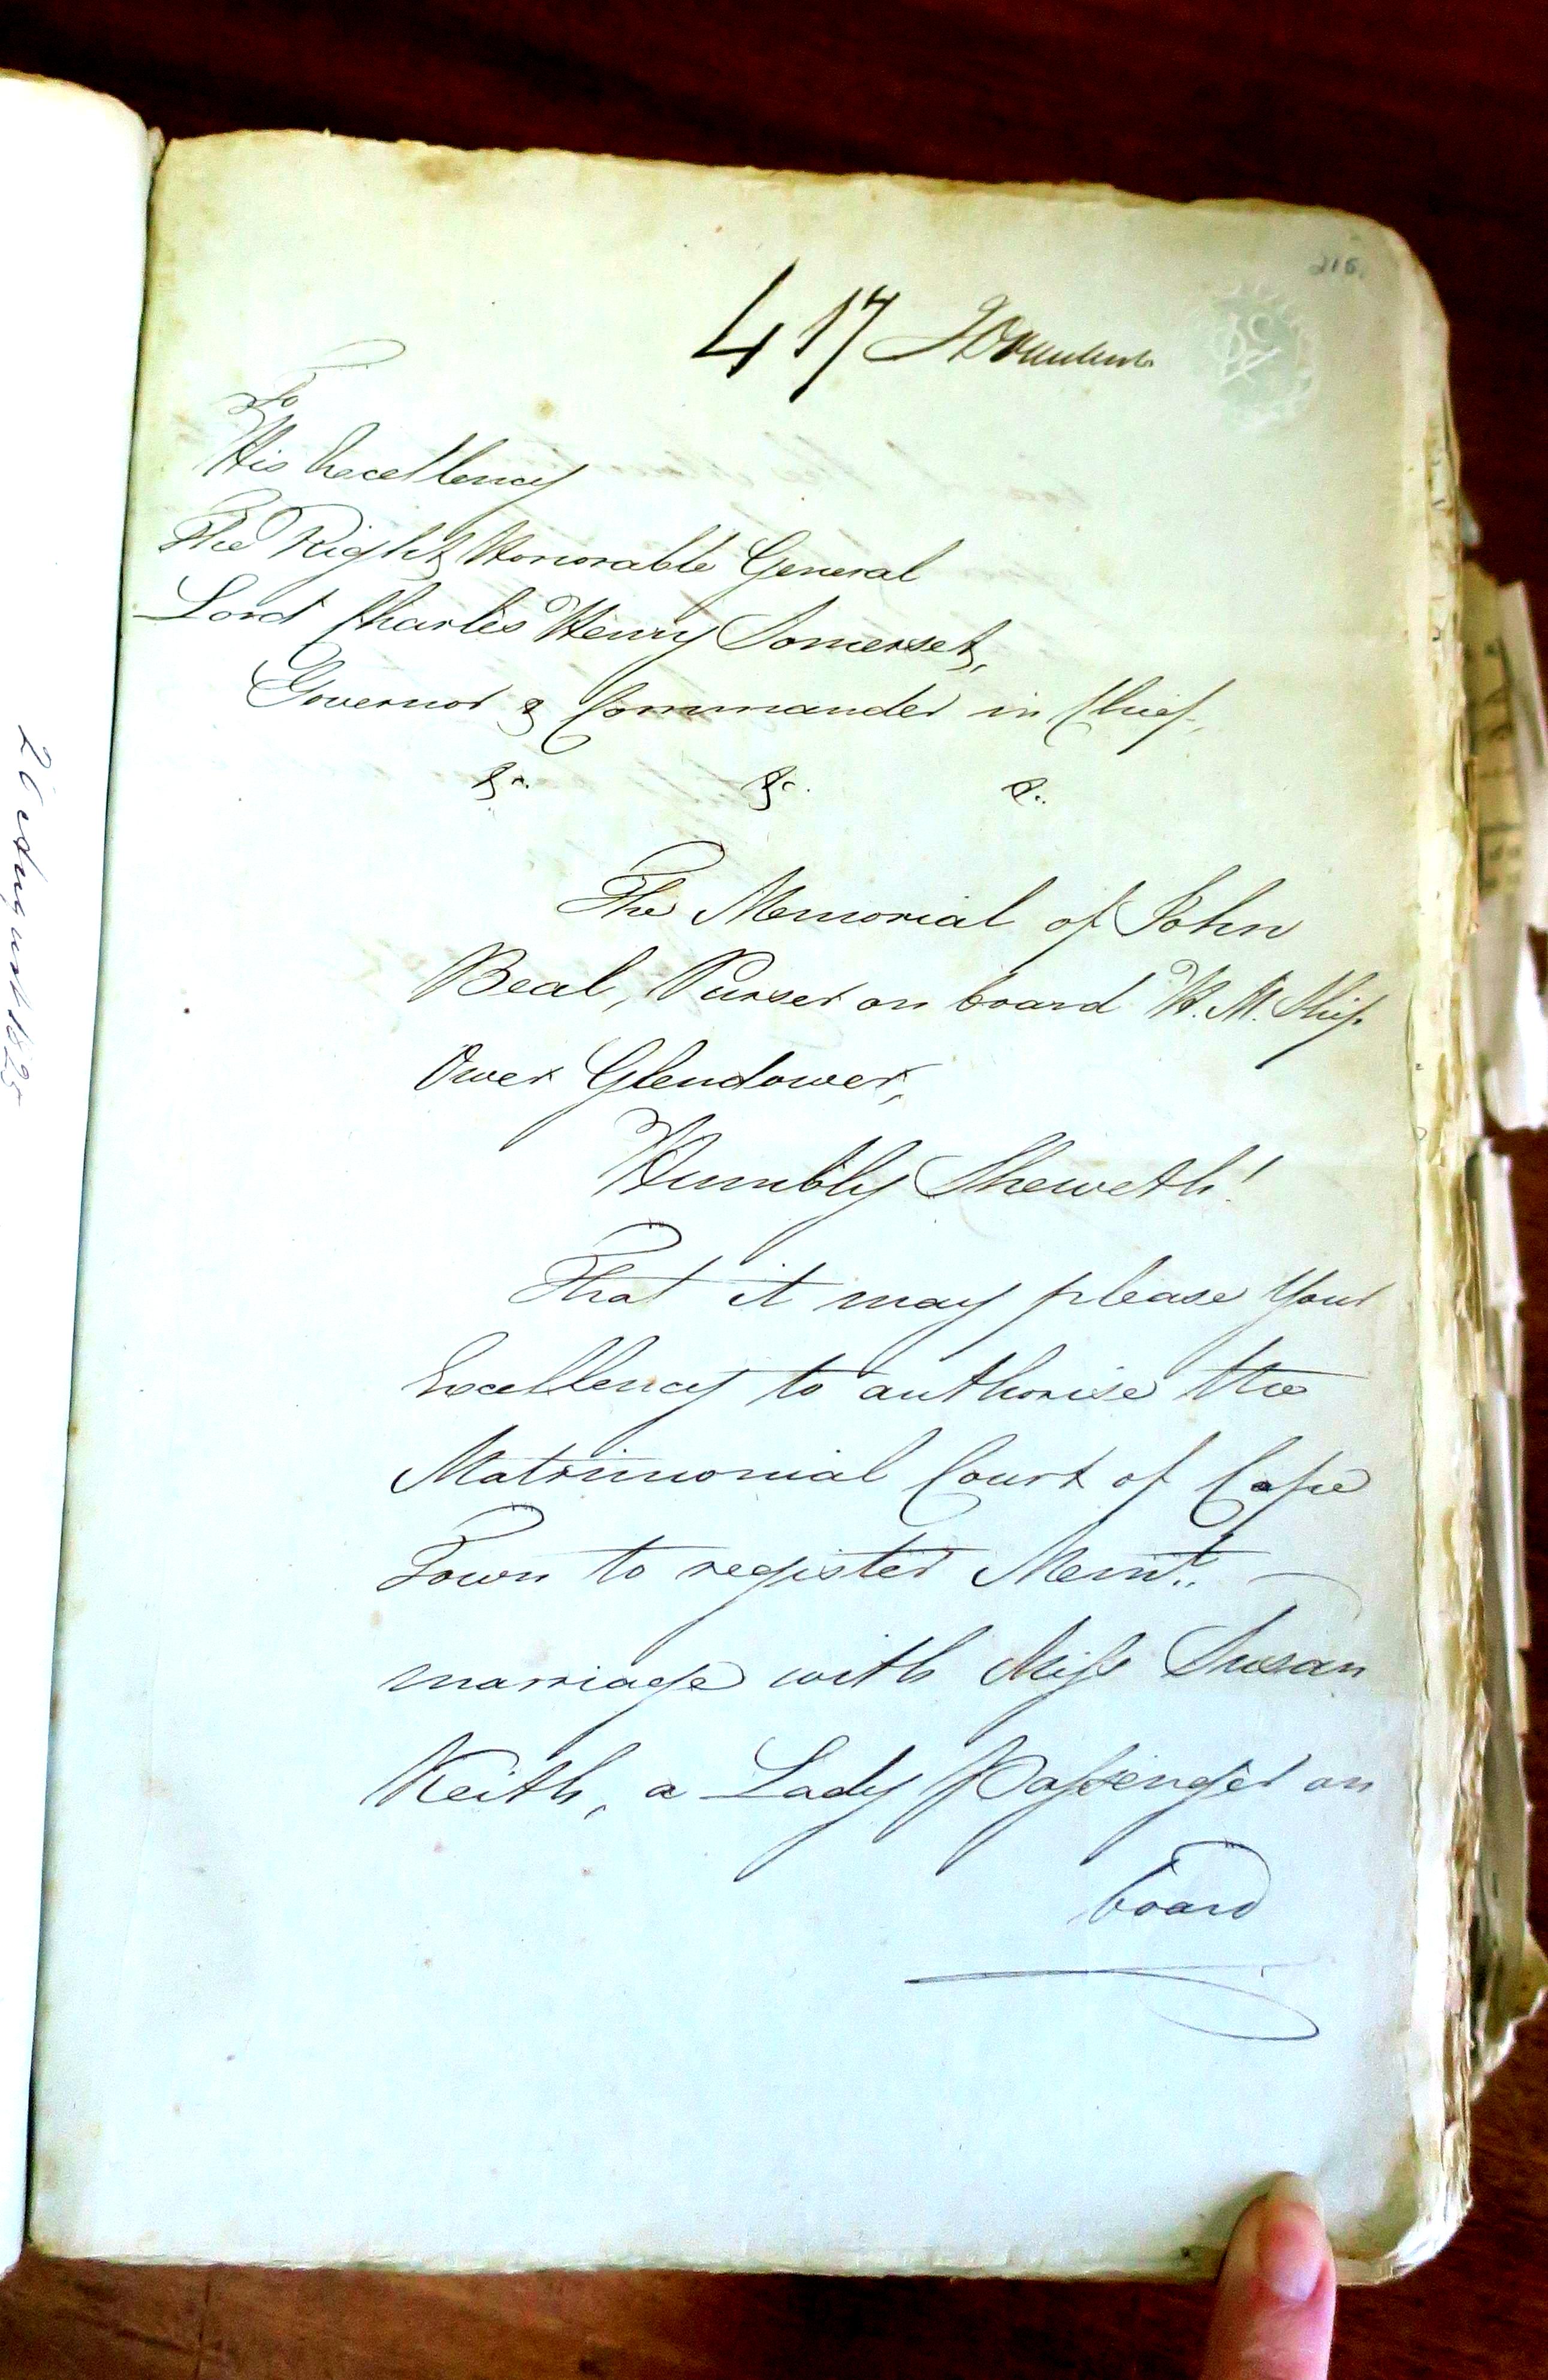 216.
417
To
His Excellency
The Right Honorable General
Lord Charles Henry Somerset,
Governor & Commander in Chief,
&c. &c. &c.
The Memorial of John
Beal, Purser on board H. M. Ship
Owen Glendower,
Humbly Sheweth!
That it may please Your
Excellency to authorise the
Matrimonial Court of Cape
Town to register Memt.
marriage with Miss Susan
Keith, a Lady Passenger on
board
August 1825